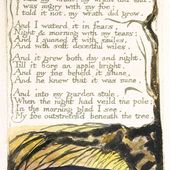 was angry with my foe:
I told it not, my wrath did grow.
And I waterd it in fears,
Night & morning with my tears:
And I sunned it with smiles,
And with soft deceitful wiles.
And it grew both day and night,
Till it bore an apple bright.
And my foe beheld it shine,
And he knew that it was mine.
And into my garden stole,
When the night had veild the pole;
In the morning glad I see,
My foe outstretchd beneath the tree.